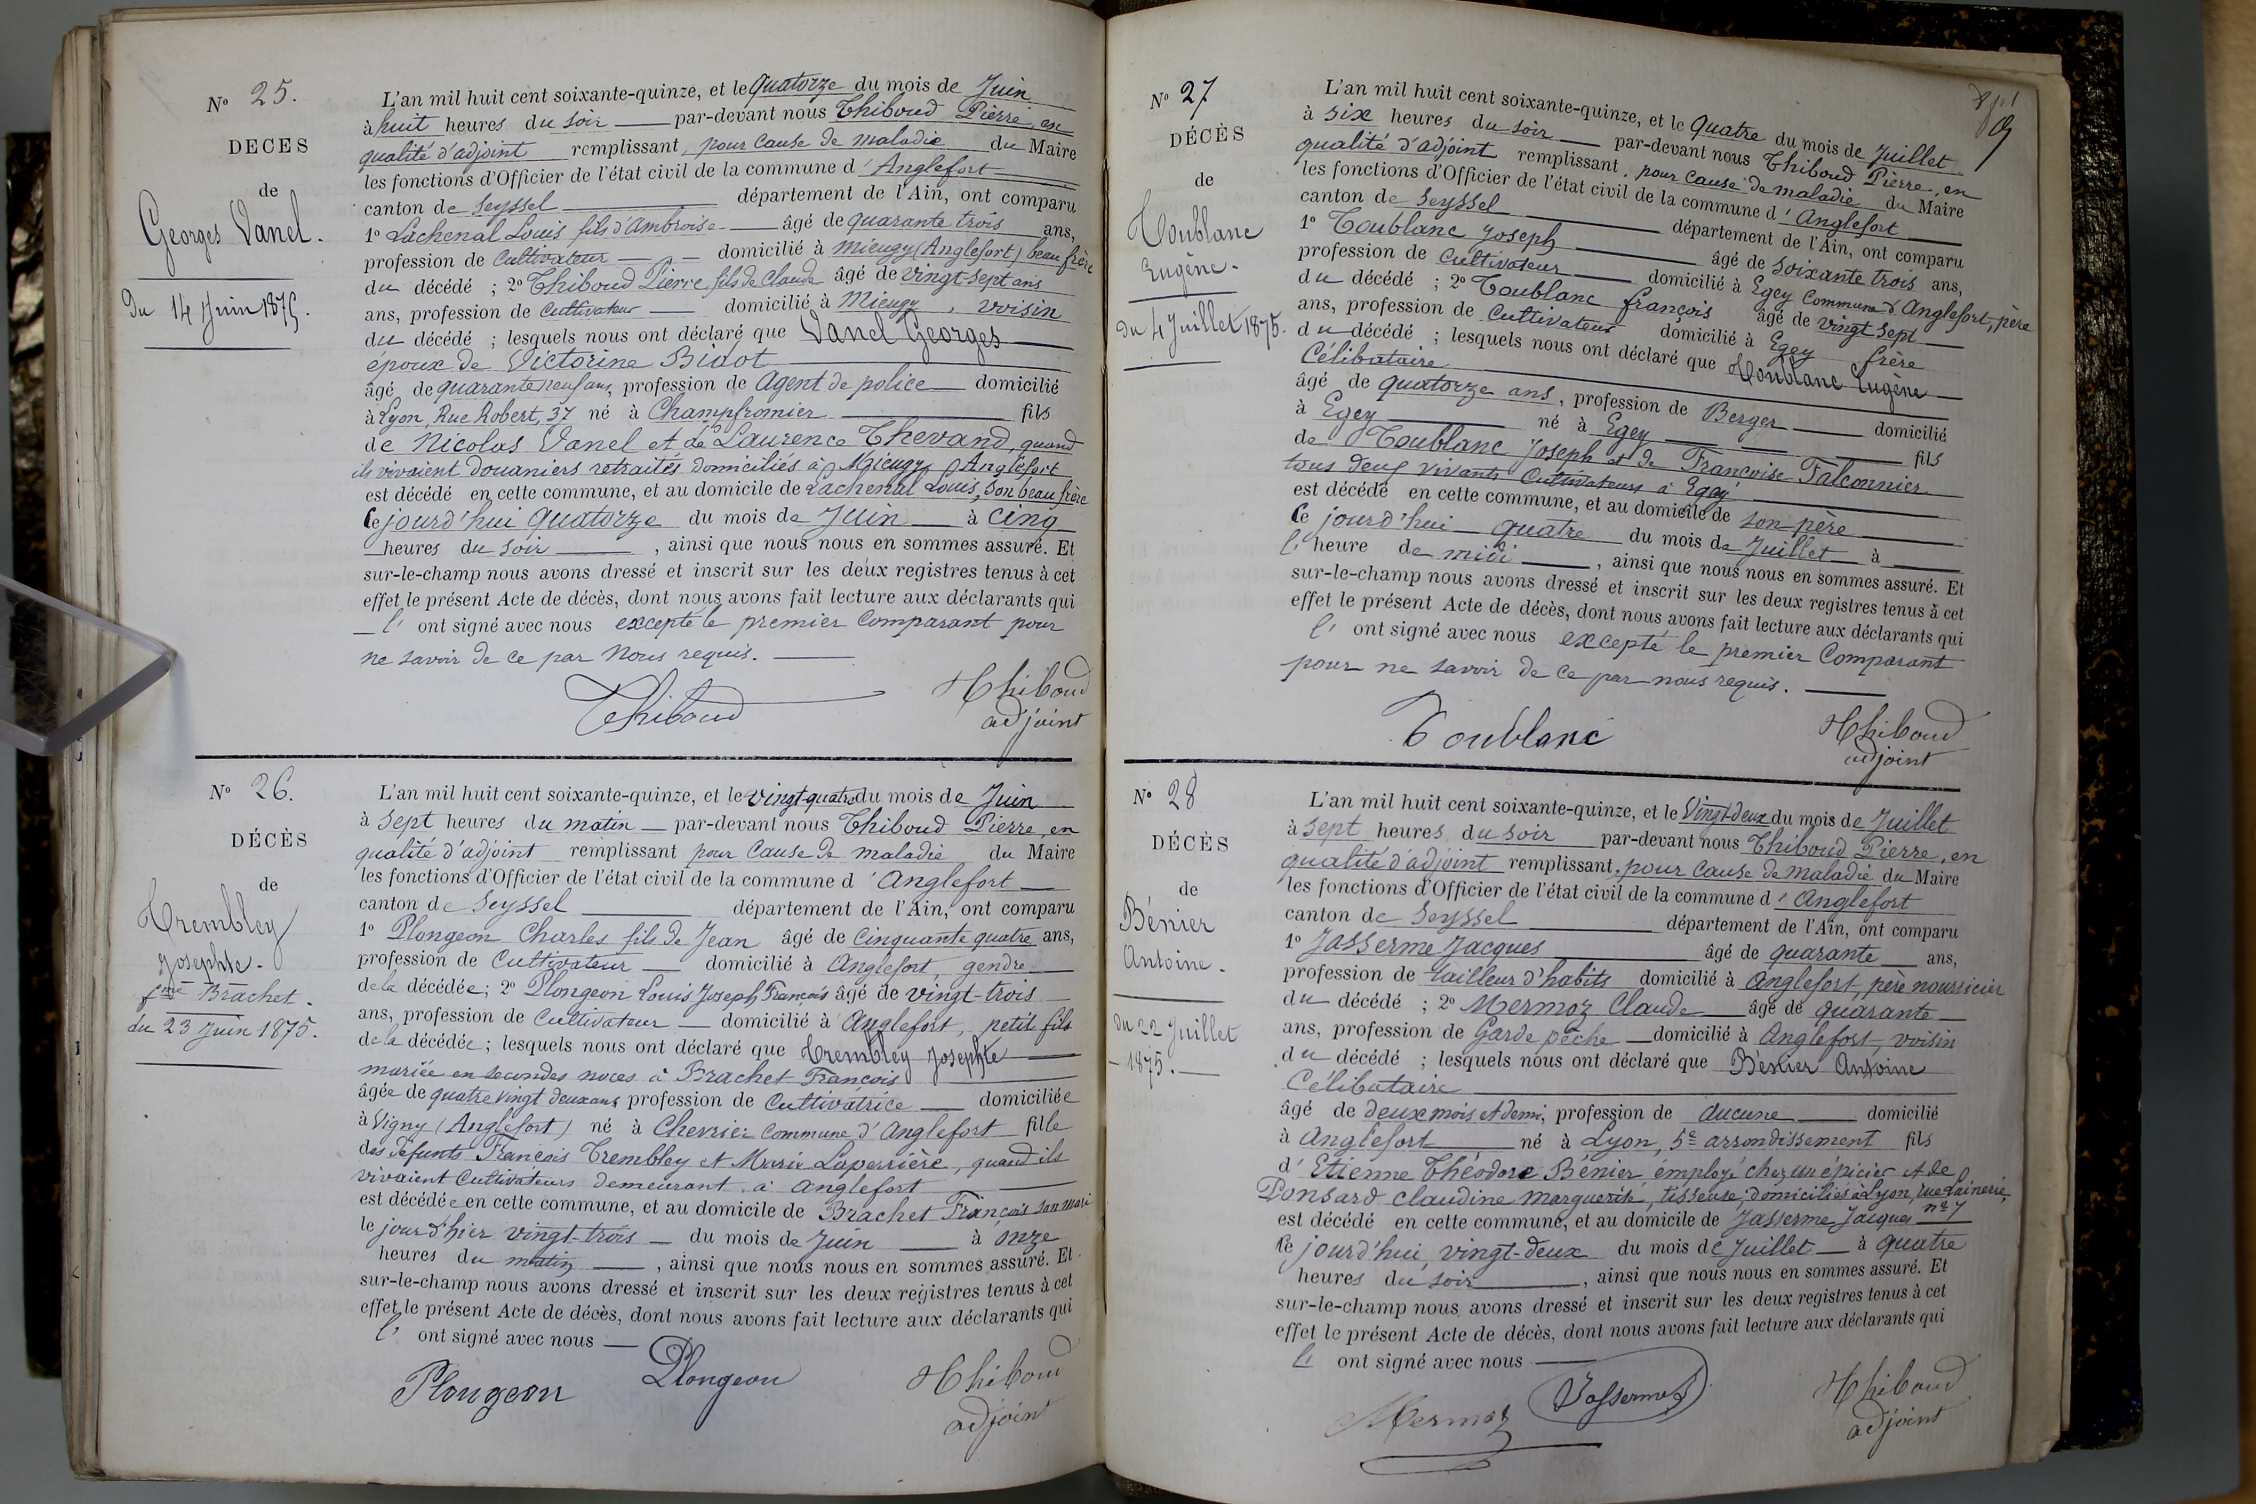 N° 25.
DÉCÈS
de
Georges Vanel.
Du 14 Juin 1875.
L'an mil huit cent soixante-quinze, et le Quatorze du mois de Juin
à huit heures du soir par-devant nous Thiboud Pierre, en
qualité d'adjoint remplissant, pour cause de maladie du Maire
les fonctions d'Officier de l'état civil de la commune d'Anglefort
canton de Seyssel département de l'Ain, ont comparu
1° Lachenal Louis fils d'Ambroise âgé de quarante trois ans,
profession de Cultivateur domicilié à Mieugy (Anglefort) beau frère
du décédé ; 2° Thiboud Pierre fils de Claude âgé de vingt-sept ans
ans, profession de Cultivateur domicilié à Mieugy, voisin
du décédé ; lesquels nous ont déclaré que Vanel Georges
époux de Victorine Bidot
âgé de quarante neuf ans, profession de Agent de police domicilié
à Lyon, Rue Robert, 37 né à Champfromier fils
de Nicolas Vanel et de Laurence Thevand, quand
ils vivaient Douaniers retraités domiciliés à Mieugy Anglefort
est décédé en cette commune, et au domicile de Lachenal Louis, son beau frère
Ce jourd'hui Quatorze du mois de Juin à Cinq
heures du soir , ainsi que nous nous en sommes assuré. Et
sur-le-champ nous avons dressé et inscrit sur les deux registres tenus à cet
effet le présent Acte de décès, dont nous avons fait lecture aux déclarants qui
l' ont signé avec nous excepté le premier Comparant pour
ne savoir de ce par Nous requis.
Thiboud
Thiboud
adjoint
N° 26.
DÉCÈS
de
Trembley
Josephte.
fme Brachet.
du 23 Juin 1875.
L'an mil huit cent soixante-quinze, et le vingt-quatre du mois de Juin
à sept heures du matin par-devant nous Thiboud Pierre, en
qualité d'adjoint remplissant pour Cause de maladie du Maire
les fonctions d'Officier de l'état civil de la commune d'Anglefort
canton de Seyssel département de l'Ain, ont comparu
1° Plongeon Charles fils de Jean âgé de Cinquante quatre ans,
profession de Cultivateur domicilié à Anglefort, gendre
de la décédée; 2° Plongeon Louis Joseph François âgé de vingt-trois
ans, profession de Cultivateur domicilié à Anglefort, petit fils
de la décédée; lesquels nous ont déclaré que Trembley Josephte
mariée en secondes noces à Brachet François
âgée de quatre vingt deux ans profession de Cultivatrice domiciliée
à Vigny (Anglefort) né à Chevrier Commune d'Anglefort fille
des défunts François Trembley et Marie Laperrière, quand ils
vivaient Cultivateurs demeurant à Anglefort
est décédée en cette commune, et au domicile de Brachet François son mari
le jour d'hier vingt-trois du mois de Juin à onze
heures du matin , ainsi que nous nous en sommes assuré. Et
sur-le-champ nous avons dressé et inscrit sur les deux registres tenus à cet
effet le présent Acte de décès, dont nous avons fait lecture aux déclarants qui
l' ont signé avec nous
Plongeon
Plongeon
Thiboud
adjoint
N° 27
DÉCÈS
de
Toublanc
Eugène.
du 4 Juillet 1875.
L'an mil huit cent soixante-quinze, et le Quatre du mois de Juillet
à six heures du soir par-devant nous Thiboud Pierre, en
qualité d'adjoint remplissant, pour cause de maladie du Maire
les fonctions d'Officier de l'état civil de la commune d'Anglefort
canton de Seyssel département de l'Ain, ont comparu
1° Toublanc Joseph âgé de soixante trois ans,
profession de Cultivateur domicilié à Egey Commune d'Anglefort, père
du décédé ; 2° Toublanc françois âgé de vingt sept
ans, profession de Cultivateur domicilié à Egey frère
du décédé ; lesquels nous ont déclaré que Toublanc Eugène
Célibataire
âgé de quatorze ans, profession de Berger domicilié
à Egey né à Egey fils
de Toublanc Joseph et de Françoise Falconnier
tous deux vivants Cultivateurs à Egey
est décédé en cette commune, et au domicile de son père
Ce jourd'hui quatre du mois de Juillet à
l'heure de midi , ainsi que nous nous en sommes assuré. Et
sur-le-champ nous avons dressé et inscrit sur les deux registres tenus à cet
effet le présent Acte de décès, dont nous avons fait lecture aux déclarants qui
l' ont signé avec nous excepté le premier Comparant
pour ne savoir de ce par nous requis.
Toublanc
Thiboud
adjoint
N° 28
DÉCÈS
de
Bénier
Antoine.
du 22 Juillet
1875.
L'an mil huit cent soixante-quinze, et le Vingt-deux du mois de Juillet
à sept heures du soir par-devant nous Thiboud Pierre, en
qualité d'adjoint remplissant, pour cause de maladie du Maire
les fonctions d'Officier de l'état civil de la commune d'Anglefort
canton de Seyssel département de l'Ain, ont comparu
1° Jasserme Jacques âgé de quarante ans,
profession de tailleur d'habits domicilié à Anglefort, père nourricier
du décédé ; 2° Mermoz Claude âgé de quarante
ans, profession de Garde pêche domicilié à Anglefort, voisin
du décédé ; lesquels nous ont déclaré que Bénier Antoine
Célibataire
âgé de deux mois et demi, profession de Aucune domicilié
à Anglefort né à Lyon, 5e arrondissement fils
d'Etienne Théodore Bénier employé chez un épicier et de
Ponsard Claudine Marguerite, tisseuse, domiciliés à Lyon, rue Lainerie,
n° 7
est décédé en cette commune, et au domicile de Jasserme Jacques
Ce jourd'hui vingt-deux du mois de Juillet à quatre
heures du soir , ainsi que nous nous en sommes assuré. Et
sur-le-champ nous avons dressé et inscrit sur les deux registres tenus à cet
effet le présent Acte de décès, dont nous avons fait lecture aux déclarants qui
l' ont signé avec nous
Mermoz
Jasserme
Thiboud
adjoint